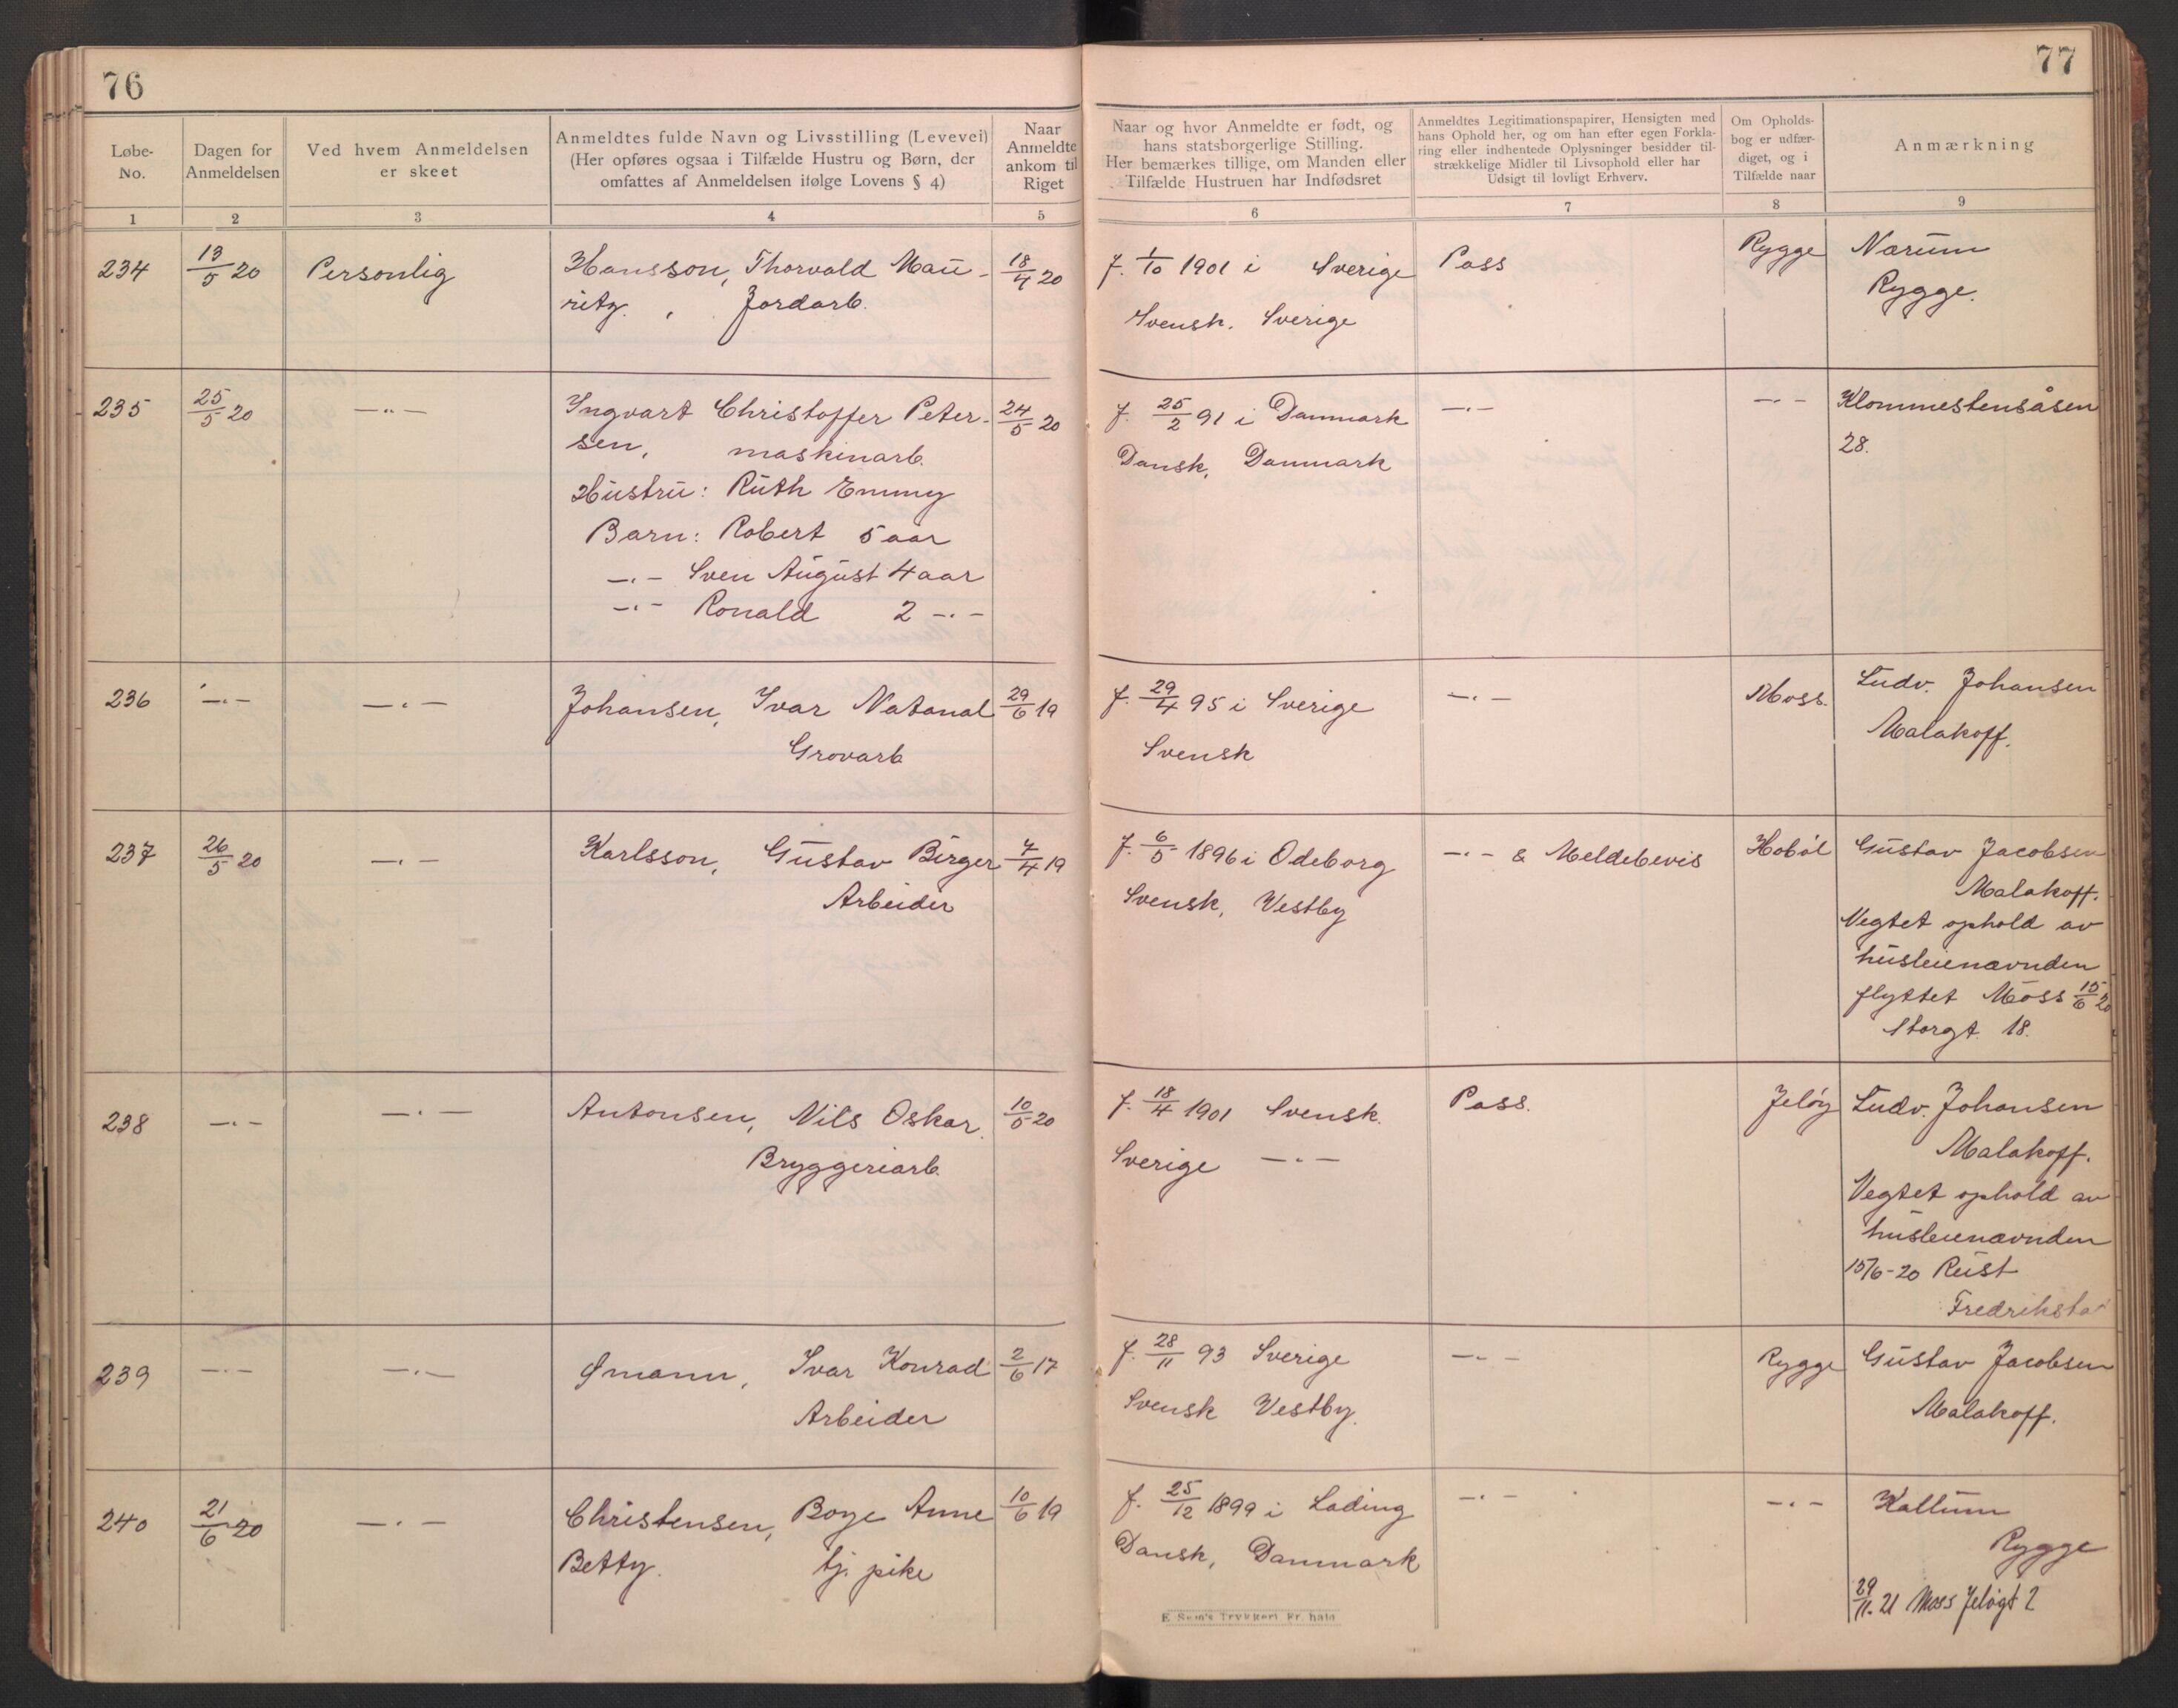 76
Løbe-
No.
Dagen for
Anmeldelsen
Ved hvem Anmeldelsen
er skeet
Anmeldtes fulde Navn og Livsstilling (Levevei)
(Her opføres ogsaa i Tilfælde Hustru og Børn, der
omfattes af Anmeldelsen ifølge Lovens § 4)
Naar
Anmeldte
ankom til
Riget
1 2 3 4 5
234 13/5 20 Personlig Hansson, Thorvald Mau- 18/4 20
ritz. , Jordarb.
235 25/5 20 —"— Ingvart Christoffer Peter- 24/5 20
sen, maskinarb.
Hustru: Ruth Emmy
Barn: Robert 5 aar
—"— Sven August 4 aar
—"— Ronald 2 —"—
236 —"— —"— Johansen, Ivar Natanal 29/6 19
Grovarb
237 26/5 20 —"— Karlsson, Gustav Birger 7/4 19
Arbeider
238 —"— —"— Antonsen, Nils Oskar. 10/5 20
Bryggeriarb.
239 —"— —"— Ømann, Ivar Konrad 2/6 17
Arbeider
240 21/6 20 —"— Christensen, Boye Anne 10/6 19
Betty. tj. pike
77
Naar og hvor Anmeldte er født, og
hans statsborgerlige Stilling.
Her bemærkes tillige, om Manden eller
Tilfælde Hustruen har Indfødsret
Anmeldtes Legitimationspapirer, Hensigten med
hans Ophold her, og om han efter egen Forkla-
ring eller indhentede Oplysninger besidder til-
strækkelige Midler til Livsophold eller har
Udsigt til lovligt Erhverv.
Om Opholds-
bog er udfær-
diget, og i
Tilfælde naar
Anmærkning
6 7 8 9
f. 1/10 1901 i Sverige Pass Rygge Nærum
Svensk. Sverige Rygge.
f. 25/2 91 i Danmark —"— —"— Klommestensåsen
Dansk, Danmark 28.
f. 29/4 95 i Sverige —"— Moss. Ludv. Johansen
Svensk Malakoff.
f. 6/5 1896 i Ödeborg —"— & Meldebevis Hobøl Gustav Jacobsen
Svensk, Vestby Malakoff.
Negtet ophold av
husleienævnden
flyttet Moss 15/6 20
Storgt. 18.
f. 18/4 1901 Svensk. Pass. Jeløy Ludv. Johansen
Sverige —"— Malakoff.
Negtet ophold av
husleienævnden
15/6-20 Reist
Fredriksta
f. 28/11 93 Sverige —"— Rygge Gustav Jacobsen
Svensk Vestby. Malakoff.
f. 25/12 1899 i Lading —"— —"— Kallum
Dansk, Danmark Rygge
29/11.21 Moss Jeløgt 2
E. Sem's Trykkeri. Fr.hald